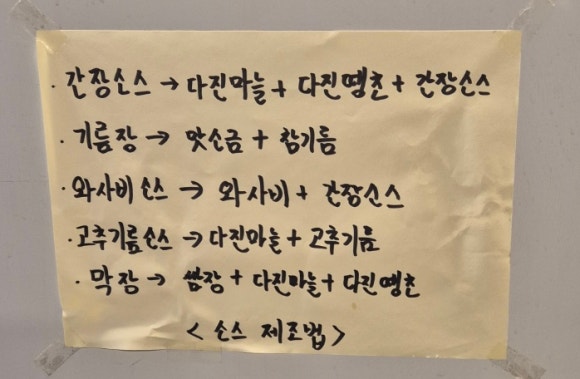 · 간장소스 → 다진마늘 + 다진땡초 + 간장소스
· 기름장 → 맛소금 + 참기름
· 와사비소스 → 와사비 + 간장소스
· 고추기름소스 → 다진마늘 + 고추기름
· 막장 → 쌈장 + 다진마늘 + 다진땡초
< 소스 제조법 >